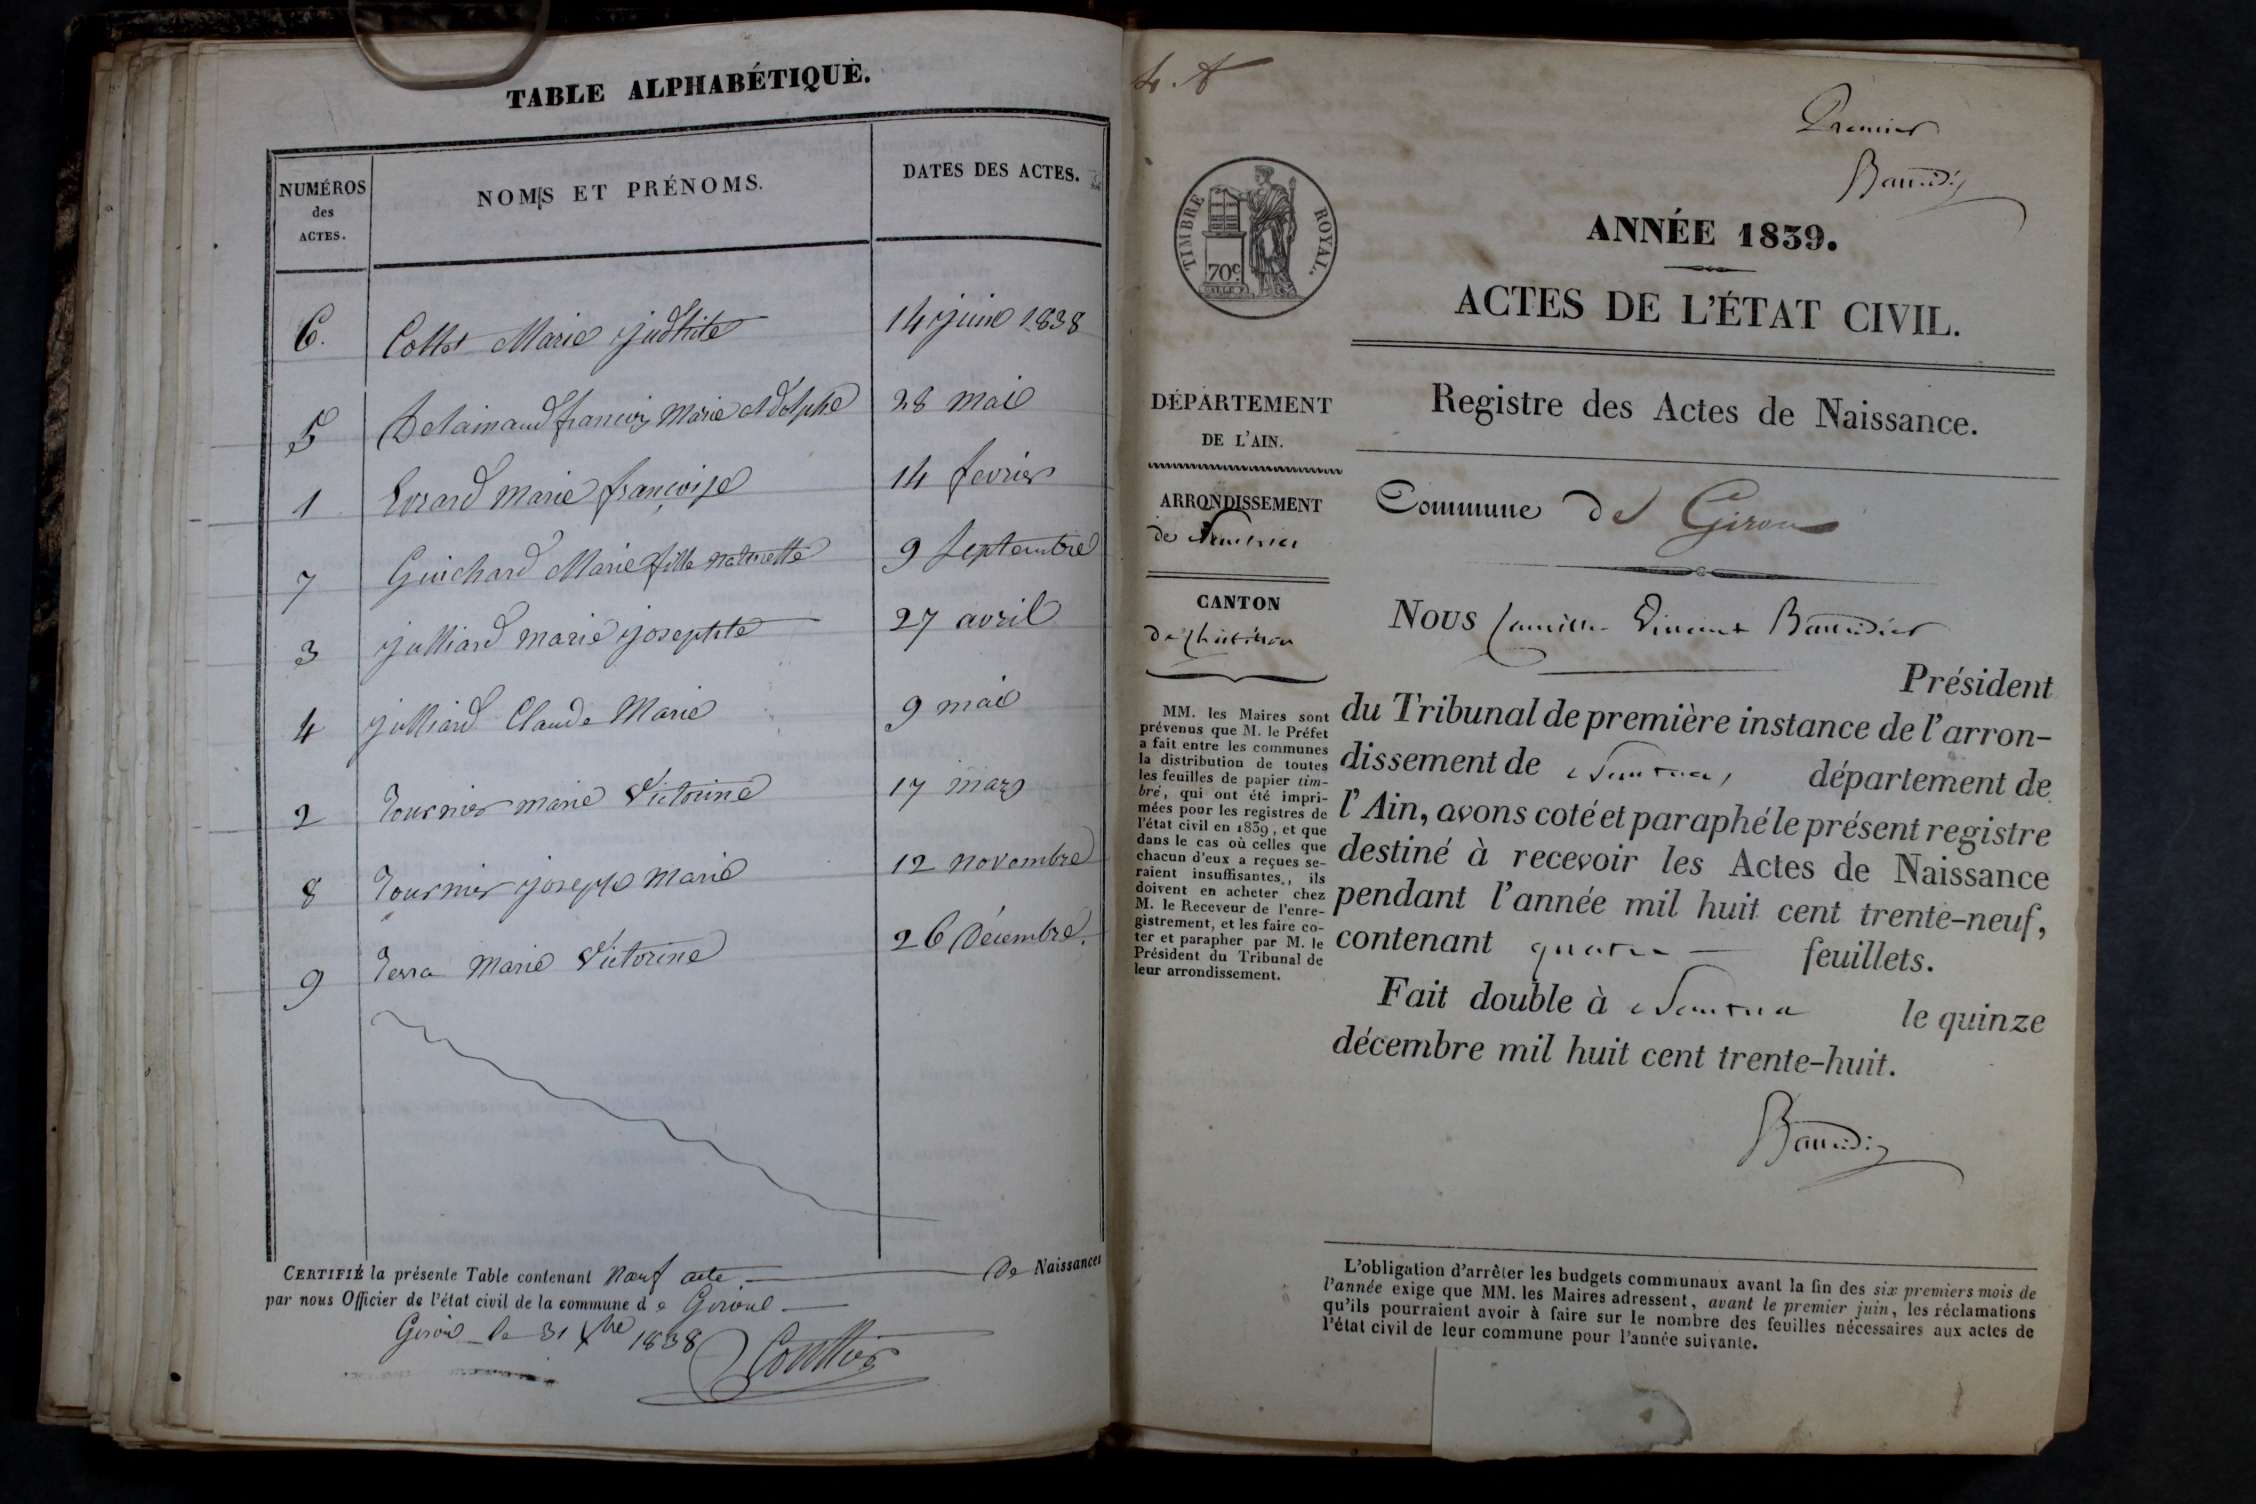 TABLE ALPHABÉTIQUE.
NUMÉROS des ACTES.
NOMS ET PRÉNOMS.
DATES DES ACTES.
6. Collet Marie Judhite 14 juin 1838
5 Delainaud françois Marie Adolphe 28 mai
1 Evrard Marie françoise 14 fevrier
7 Guichard Marie fille naturelle 9 Septembre
3 julliard marie josephte 27 avril
4 julliard Claude Marie 9 mai
2 Tournier marie Victorine 17 mars
8 Tournier joseph Marie 12 novembre
9 Terra Marie Victorine 26 Décembre.
CERTIFIÉ la présente Table contenant Neuf acte de Naissances
par nous Officier de l'état civil de la commune de Giron
Giron le 31 Xbre 1838
Premier
Baudi
TIMBRE ROYAL.
70c
ANNÉE 1839.
ACTES DE L'ÉTAT CIVIL.
DÉPARTEMENT
DE L'AIN.
ARRONDISSEMENT
de Nantua
CANTON
de Chatillon
MM. les Maires sont
prévenus que M. le Préfet
a fait entre les communes
la distribution de toutes
les feuilles de papier tim-
bré, qui ont été impri-
mées pour les registres de
l'état civil en 1839, et que
dans le cas où celles que
chacun d'eux a reçues se-
raient insuffisantes, ils
doivent en acheter chez
M. le Receveur de l'enre-
gistrement, et les faire co-
ter et parapher par M. le
Président du Tribunal de
leur arrondissement.
Registre des Actes de Naissance.
Commune de Giron
Nous Camille Vincent Baudier
Président
du Tribunal de première instance de l'arron-
dissement de Nantua, département de
l'Ain, avons coté et paraphé le présent registre
destiné à recevoir les Actes de Naissance
pendant l'année mil huit cent trente-neuf,
contenant quatre feuillets.
Fait double à Nantua le quinze
décembre mil huit cent trente-huit.
Baudi
L'obligation d'arrêter les budgets communaux avant la fin des six premiers mois de
l'année exige que MM. les Maires adressent, avant le premier juin, les réclamations
qu'ils pourraient avoir à faire sur le nombre des feuilles nécessaires aux actes de
l'état civil de leur commune pour l'année suivante.